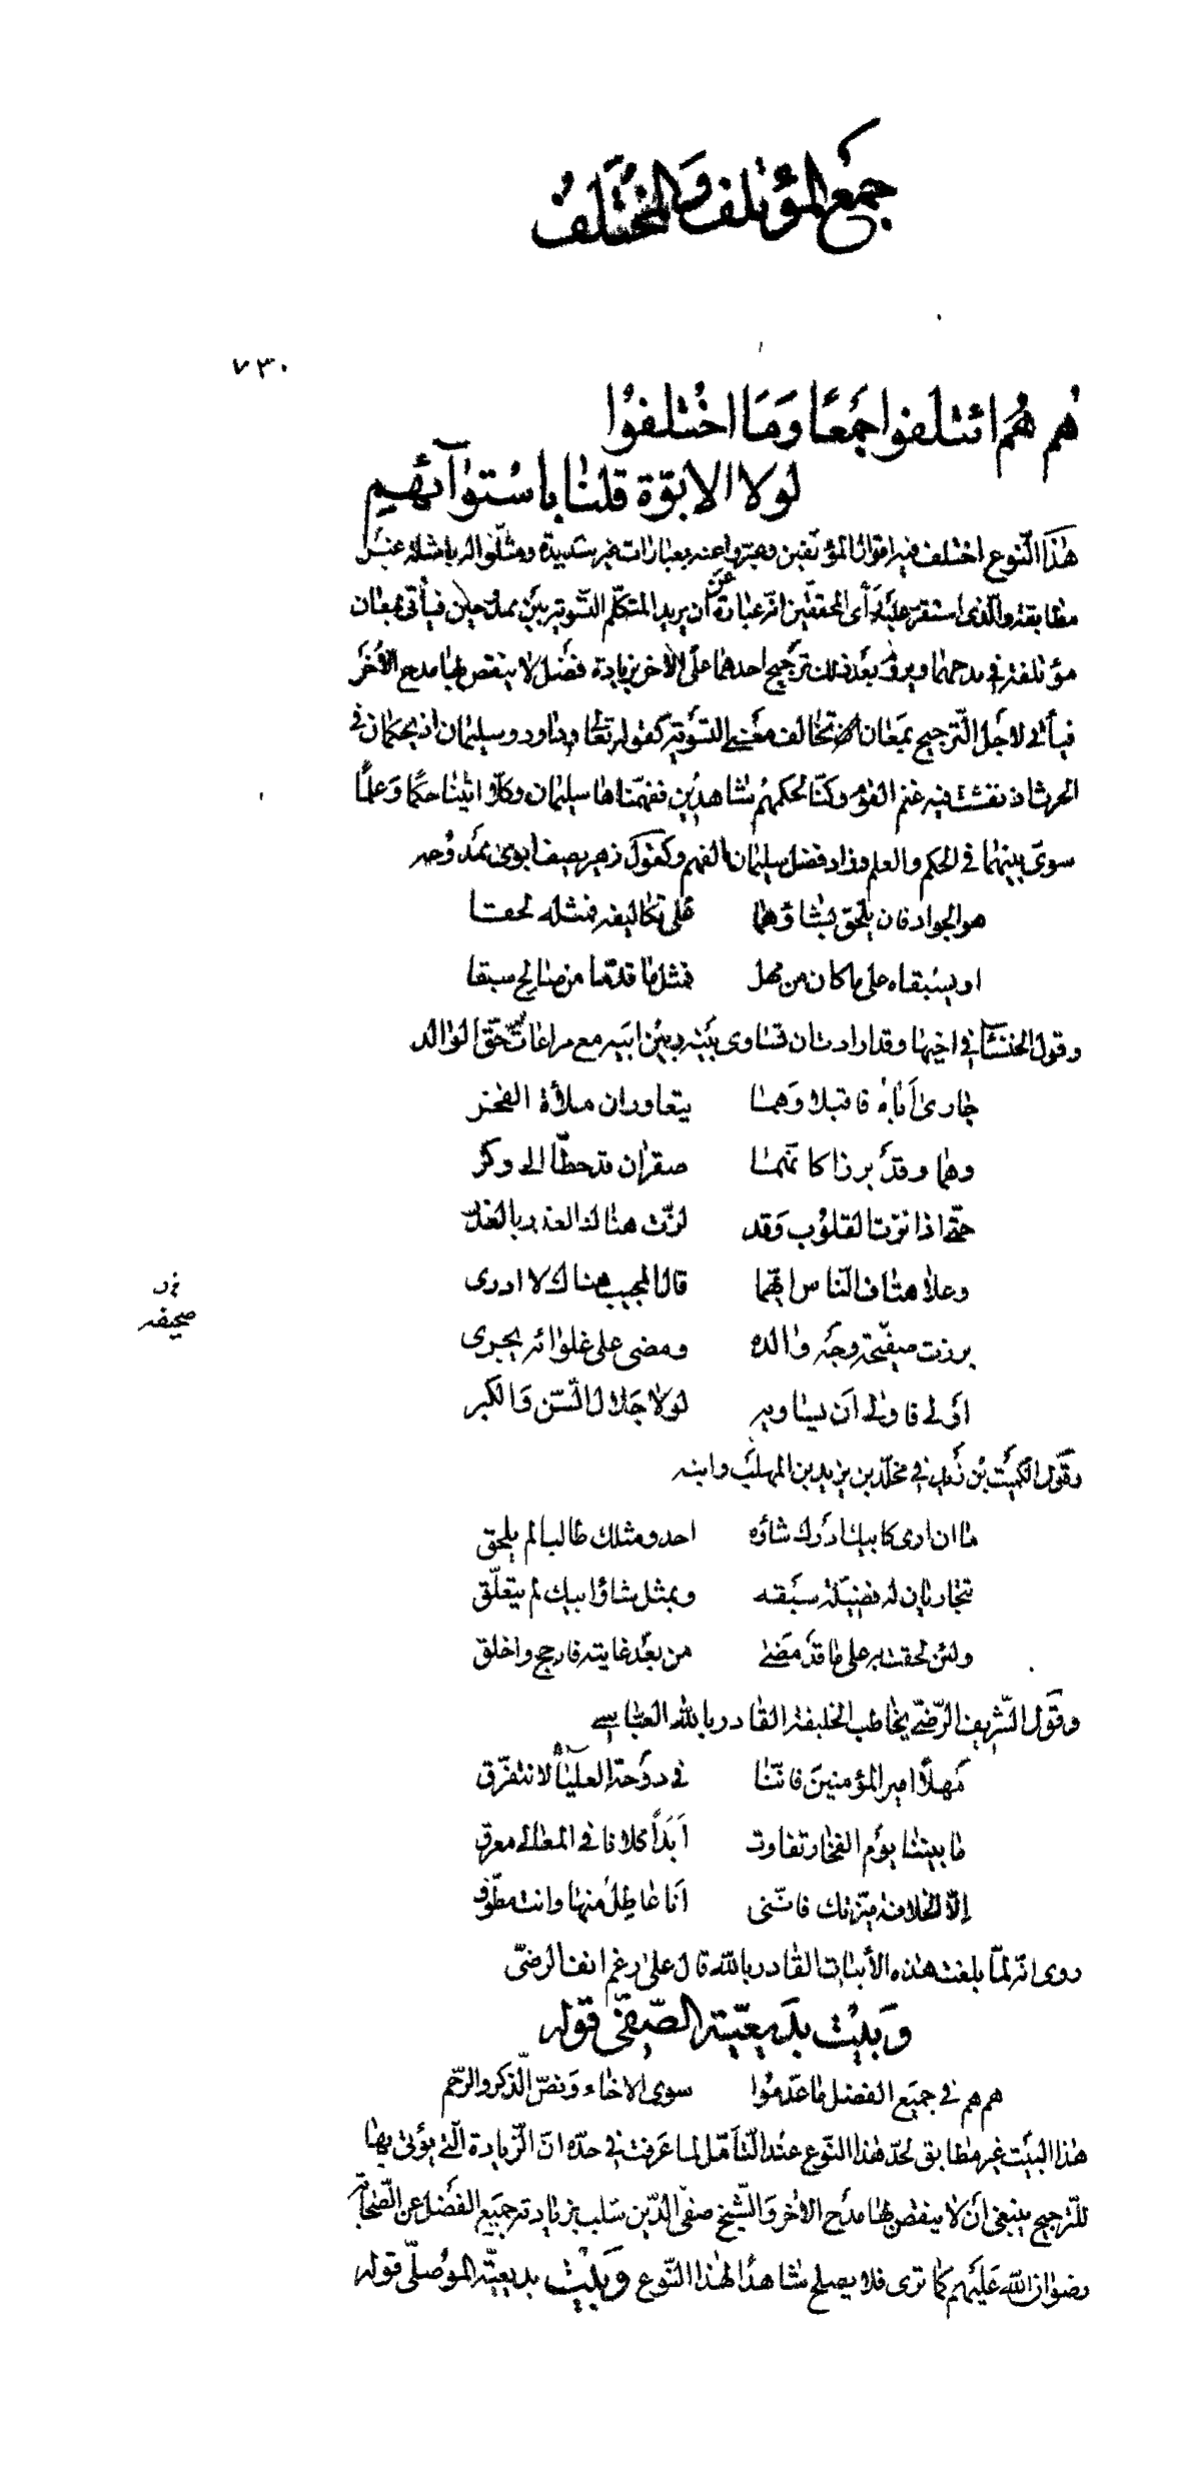 جمع المؤتلف والمختلف
٧٣٠
هُم هُم ائتلفوا جمعًا وَمَا اختلفوا
لولا الابوّة قلنا باستوآئهم
هٰذا النّوع اختلف فيه اقوال المؤلّفين وعبّروا عنه بعبارات غير سديدة ومثّلوا له بامثلة غير
مطابقة والّذى استقرّ عليه رأى المحققين انّه عبارة عن ان يريد المتكلّم التّسوية بين ممدوحين فيأتى بمعان
مؤتلفة فى مدحهما ويروم بعد ذلك ترجيح احدهما على الآخر بزيادة فضل لا ينقص بها مدح الآخر
فيأتى لاجل التّرجيح بمعان تخالف معنى التسوية كقوله تعالى وداود وسليمان اذ يحكمان فى
الحرث اذ نفشت فيه غنم القوم وكنّا لحكمهم شاهدين ففهّمناها سليمان وكلّا اتينا حكمًا وعلمًا
سوى بينهما فى الحكم والعلم وزاد فضل سليمان بالفهم وكقول زهير يصف ابوى ممدوحه
هو الجواد فان يلحق بشاوهما على تكاليفه فمثله لحقا
او يسبقاه على ما كان من مهل فمثل ما قدّما من صالح سبقا
وقول الخنساء فى اخيها وقد ارادت ان تساوى بينه وبين ابيه مع مراعات حقّ الوالد
جارى اباه فاقبلا وهما يتعاوران ملأة الفخر
وهما وقد برزا كانّهما صقران قد حطّا الى وكر
حتّى اذا نزت القلوب وقد لزّت هناك العذر بالعذر
وعلا هتاف النّاس ايّهما قال المجيب هناك لا ادرى
صحيفه
برزت صفيحة وجه والده ومضى على غلوائه يجرى
اولى فاولى ان يساويه لولا جلال السّن والكبر
وقول الكميت بن زيد فى مخلّد بن يزيد بن المهلب وابنه
ما ان ارى كابيك ادرك شاوه احد ومثلك طالبا لم يلحق
تتجاريان له فضيلة سبقه وبمثل شاؤ ابيك لم يتعلّق
ولئن لحقت به على ما قد مضى من بعد غايته فارجح واخلق
وقول الشّريف الرّضىّ يخاطب الخليفة القادر بالله العبّاسى
مهلًا امير المؤمنين فانّنا فى دوحة العلياء لا نتفرّق
ما بيننا يوم الفخار تفاوت ابدًا كلانا فى المعالى معرق
إلّا الخلافة ميّزتك فانّنى انا عاطل منها وانت مطوّق
روى انّه لمّا بلغت هذه الأبيات القادر بالله قال على رغم انف الرضىّ
وبيت بديعيّة الصّفىّ قوله
هم هم فى جميع الفضل ما عدموا سوى الاخاء ونصّ الذّكر والرّحم
هٰذا البيت غير مطابق لحدّ هٰذا النّوع عند التّأمّل لما عرفت فى حدّه انّ الزّيادة الّتى يؤتى بها
للتّرجيح ينبغى ان لا ينقص بها مدح الآخر والشّيخ صفىّ الدّين سلب بزيادته جميع الفضل عن الصّحابة
رضوان الله عليهم كما ترى فلا يصلح شاهدًا لهٰذا النّوع وبيت بديعيّة الموصلىّ قوله